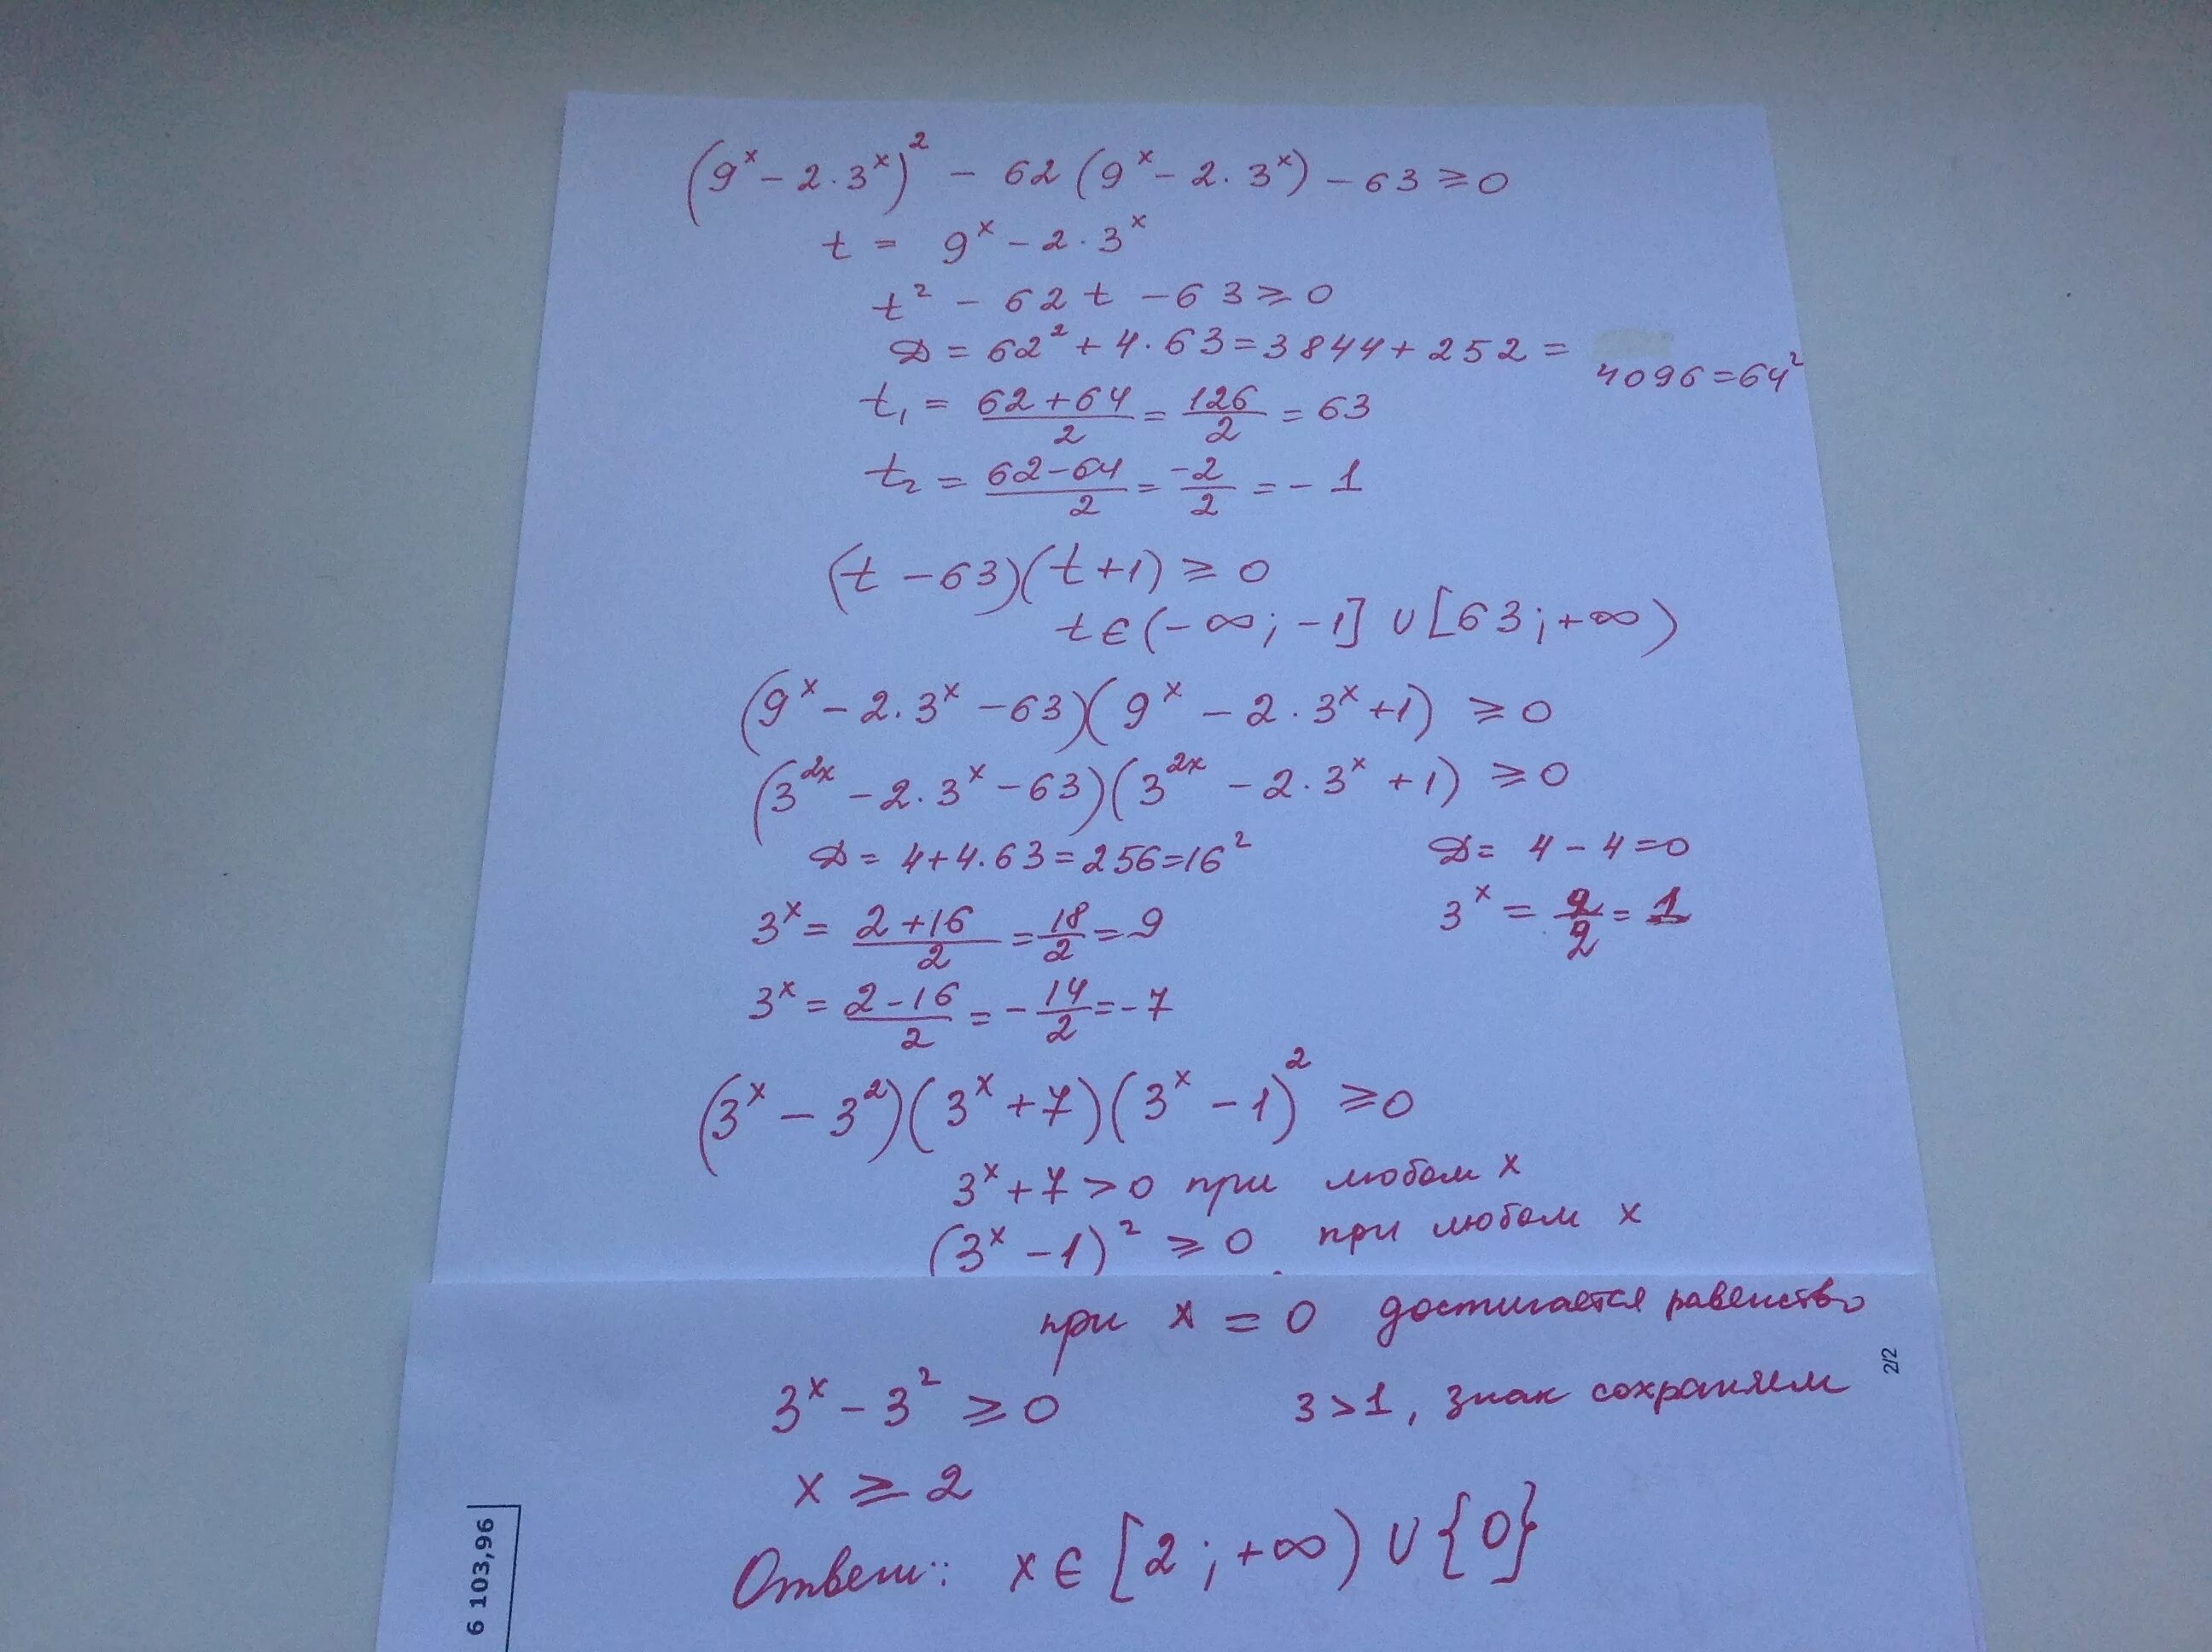 (9^x - 2·3^x)^2 - 62(9^x - 2·3^x) - 63 ≥ 0
t = 9^x - 2·3^x
t^2 - 62t - 63 ≥ 0
D = 62^2 + 4·63 = 3844 + 252 = 4096 = 64^2
t₁ = (62+64)/2 = 126/2 = 63
t₂ = (62-64)/2 = -2/2 = -1
(t - 63)(t + 1) ≥ 0
t ∈ (-∞; -1] ∪ [63; +∞)
(9^x - 2·3^x - 63)(9^x - 2·3^x + 1) ≥ 0
(3^{2x} - 2·3^x - 63)(3^{2x} - 2·3^x + 1) ≥ 0
D = 4 + 4·63 = 256 = 16^2 D = 4 - 4 = 0
3^x = (2+16)/2 = 18/2 = 9 3^x = 2/2 = 1
3^x = (2-16)/2 = -14/2 = -7
(3^x - 3^2)(3^x + 7)(3^x - 1)^2 ≥ 0
3^x + 7 > 0 при любом x
(3^x - 1)^2 ≥ 0 при любом x
при x = 0 достигается равенство
2/2
3^x - 3^2 ≥ 0 3 > 1, знак сохраняем
x ≥ 2
Ответ: x ∈ [2; +∞) ∪ {0}
6 103,96